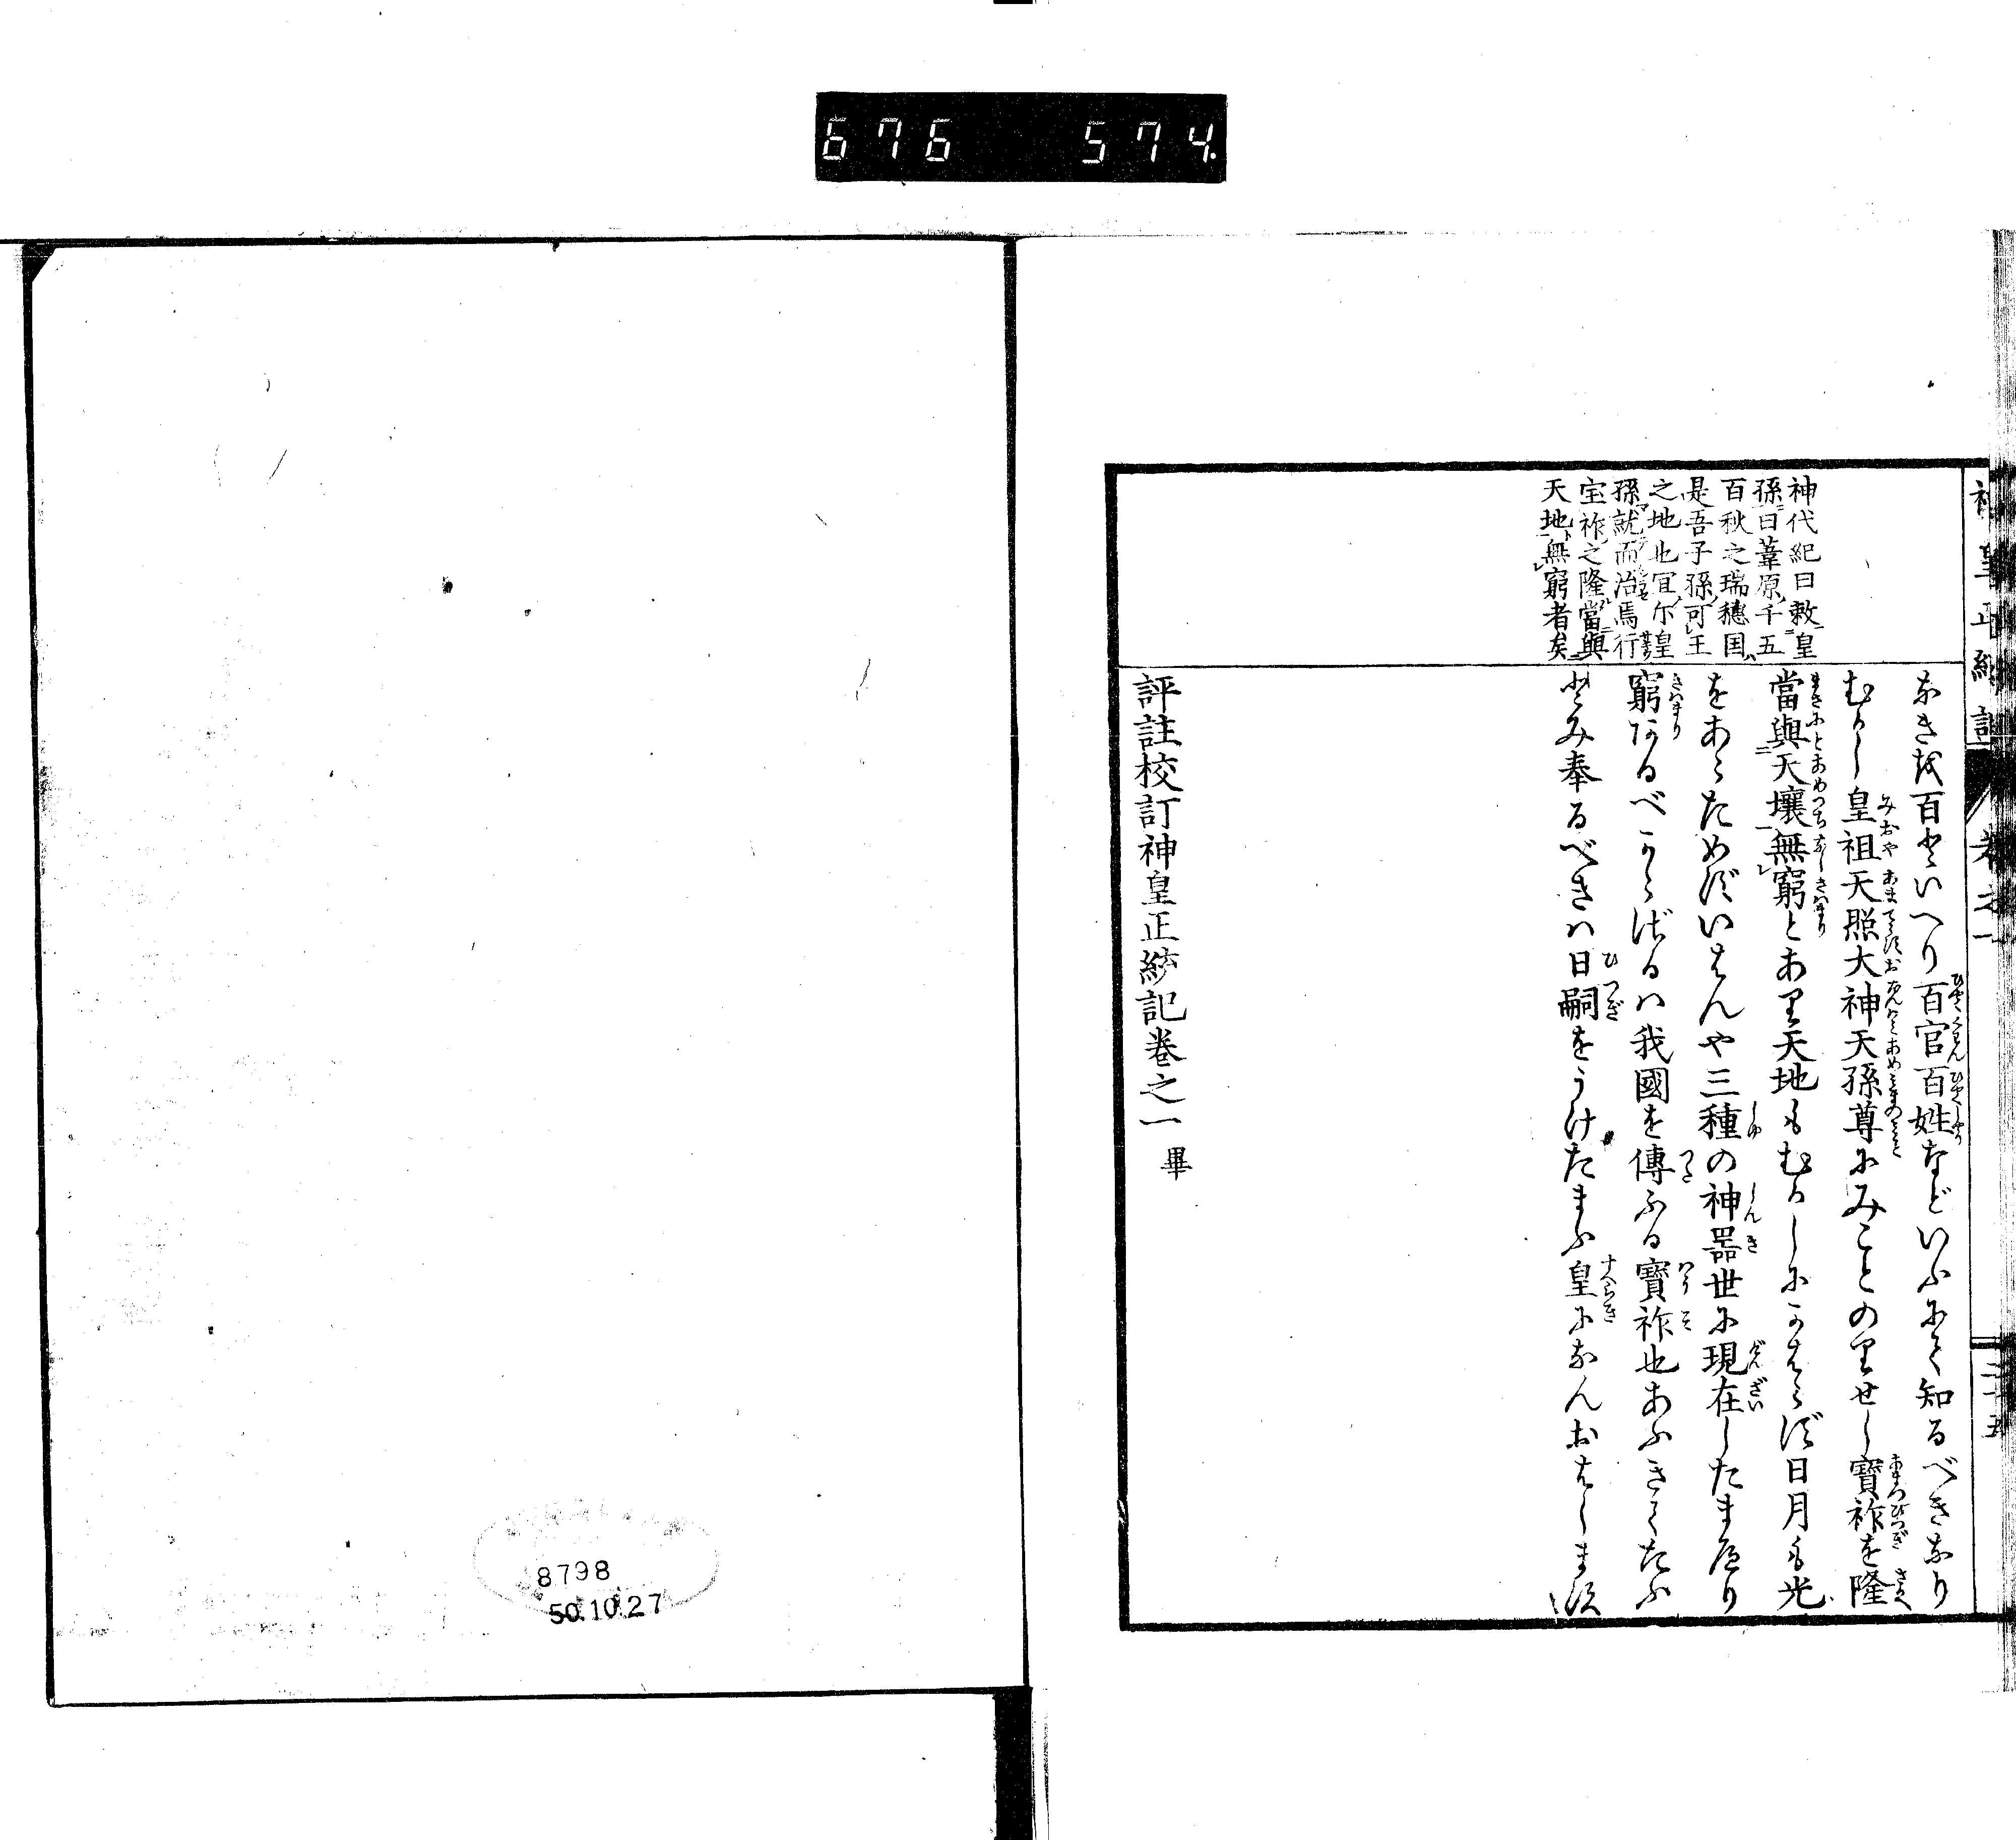 676 574.
神代紀曰敕皇
孫曰葦原千五
百秋之瑞穗国
是吾子孫可王
之地也宜尓皇
孫就而治焉行
宝祚之隆當與
天地無窮者矣
なきを百といへり百官百姓などいふにて知るべきなり
むかし皇祖天照大神天孫尊にみことのりせし寶祚を隆
當與天壤無窮とあり天地もむかしにかはらず日月も光
をあらためずいはんや三種の神器世に現在したまへり
窮あるべからざるハ我國を傳ふる寶祚也あふぎてたふ
とみ奉るべきハ日嗣をうけたまふ皇になんおはします
評註校訂神皇正統記巻之一 畢
8798
50.10.27